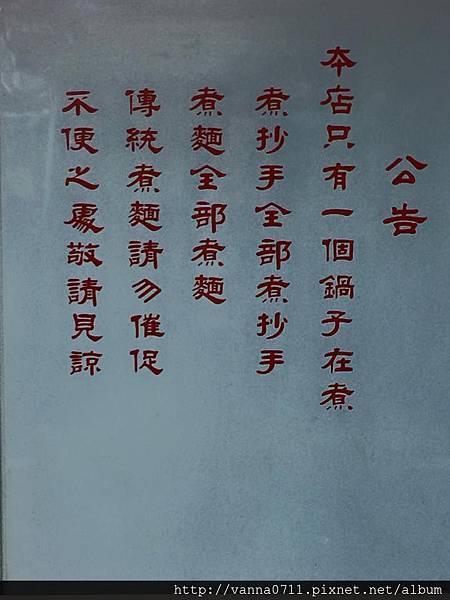 公告
本店只有一個鍋子在煮
煮抄手全部煮抄手
煮麵全部煮麵
傳統煮麵請勿催促
不便之處敬請見諒
http://vanna0711.pixnet.net/album